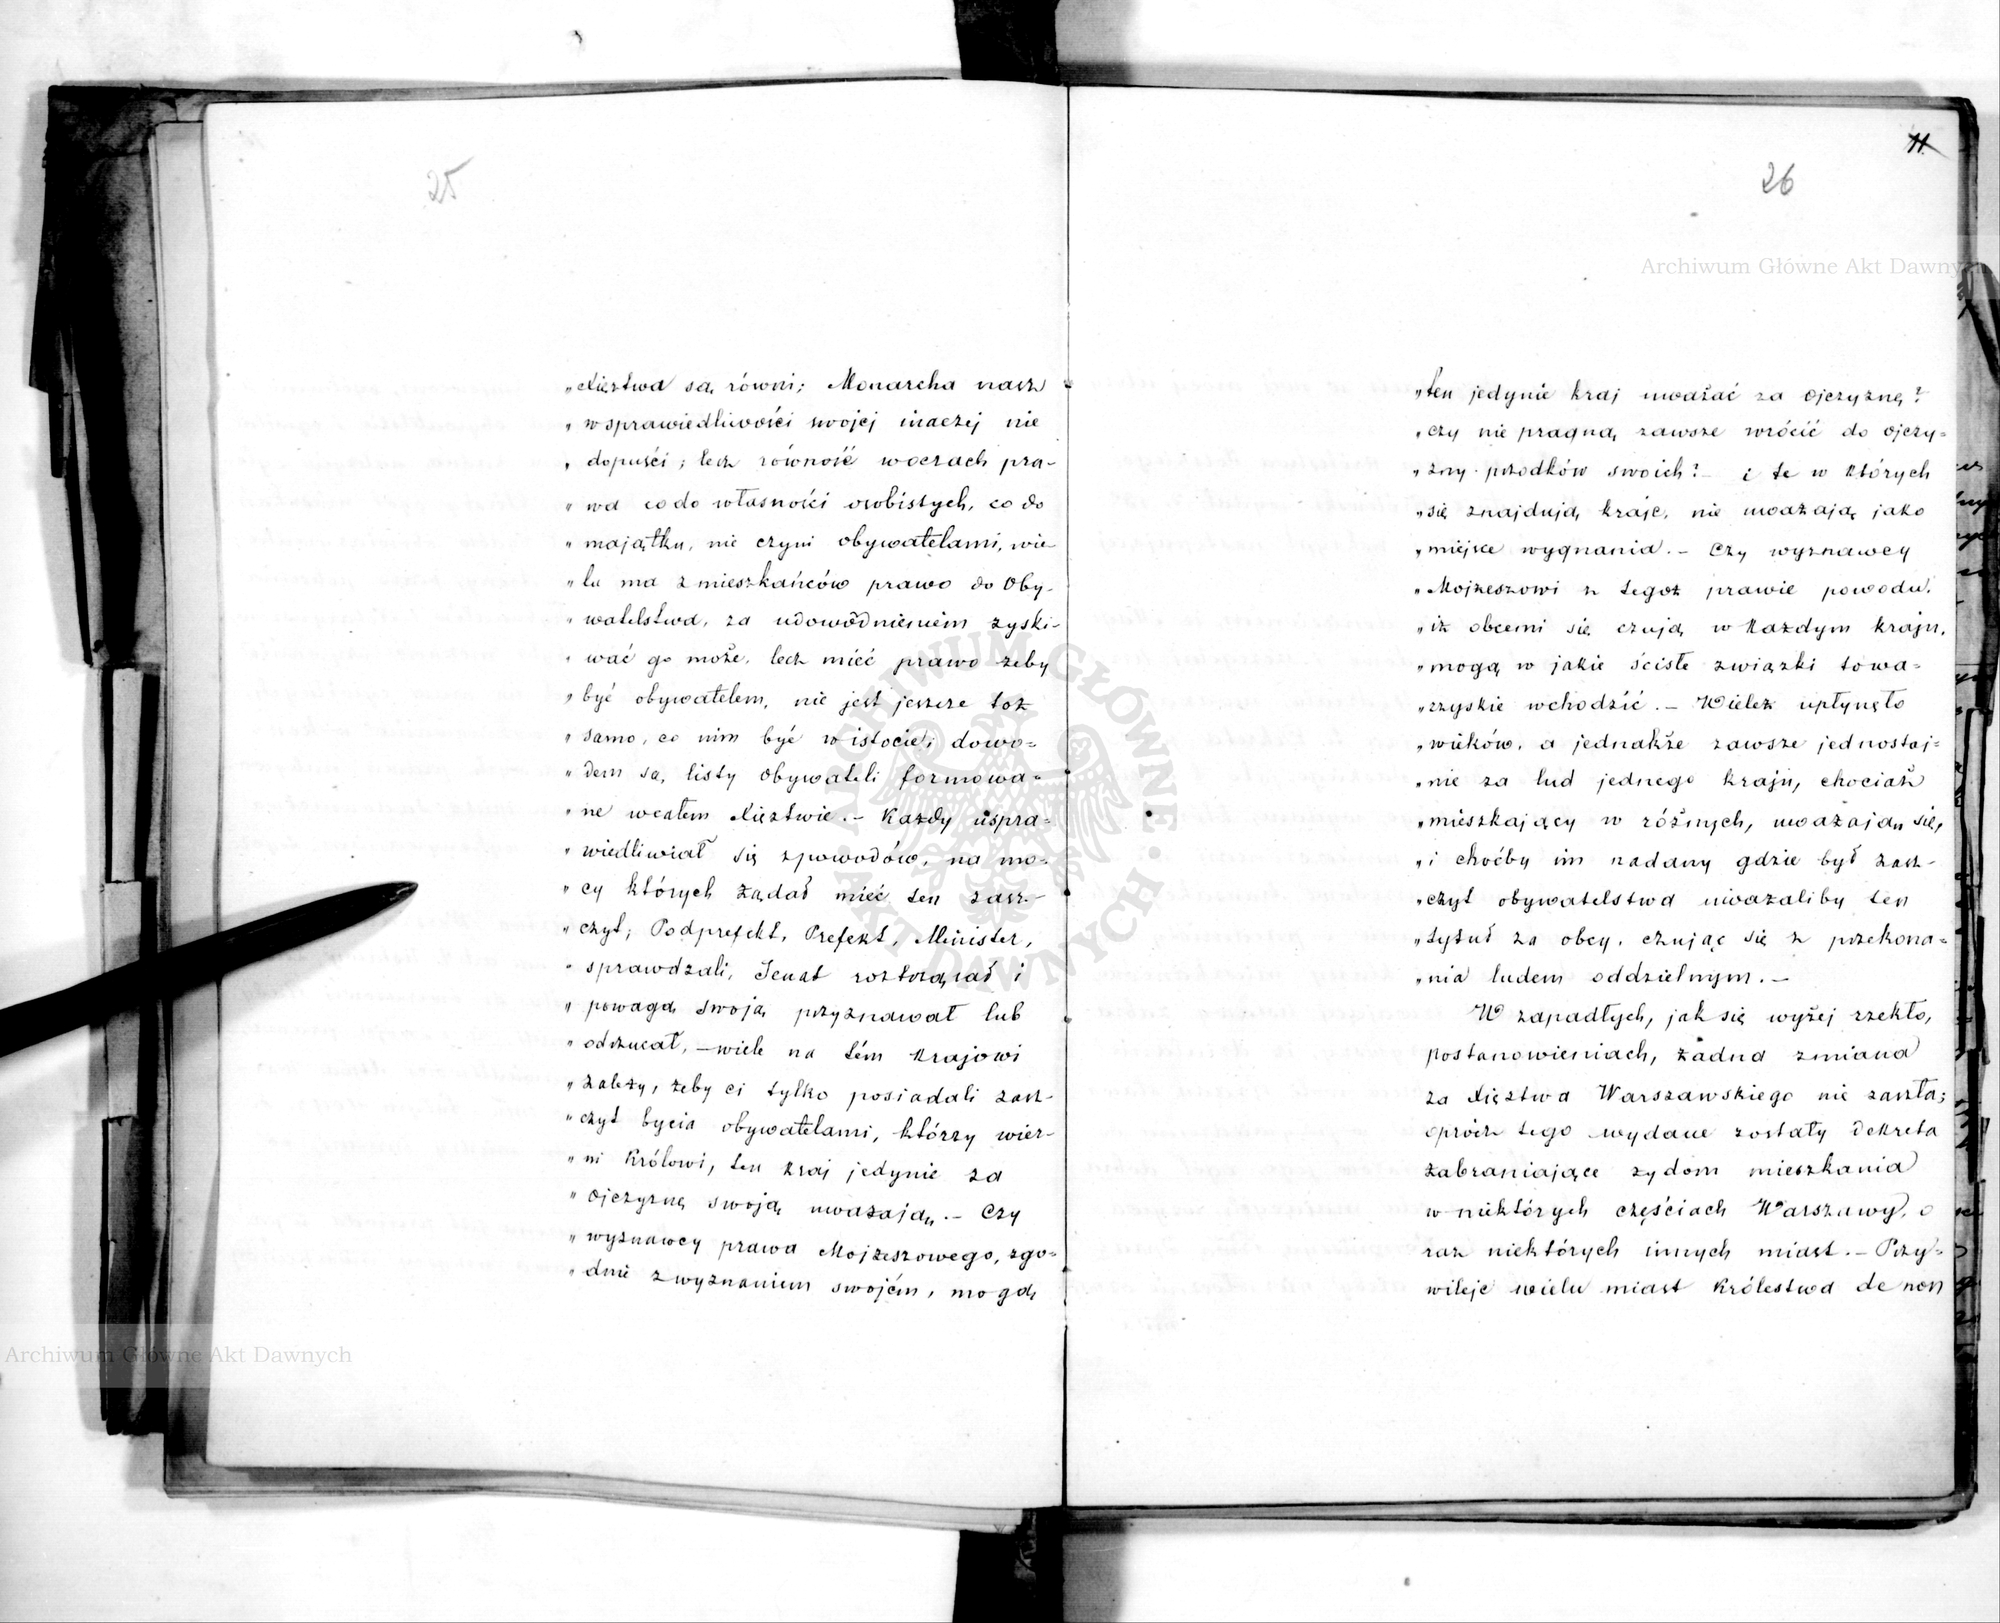 25
„Xięztwa są równi; Monarcha nasz
„ w sprawiedliwości swojej inaczej nie
„ dopuści; lecz równość w oczach pra-
„ wa co do własności osobistych, co do
„ majątku, nie czyni obywatelami, wie-
„ lu ma z mieszkańców prawo do Oby-
„ watelstwa, za udowodnieniem zyski-
„ wać go może, lecz mieć prawo żeby
„ być obywatelem, nie jest jeszcze toż
„ samo, co nim być w istocie; dowo-
„ dem są, listy obywateli formowa-
„ ne w całem Xięztwie. — Każdy uspra-
„ wiedliwiał się z powodów, na mo-
„ cy których żądał mieć ten zasz-
„ czyt; Podprefekt, Prefekt, Minister,
„ sprawdzali, Senat roztrząsał i
„ powagą swoją przyznawał lub
„ odrzucał, — wiele na tém Krajowi
„ zależy, żeby ci tylko posiadali zasz-
„ czyt bycia obywatelami, którzy wier-
„ ni Królowi, ten kraj jedynie za
„ Ojczyznę swoją uważają. — Czy
„ wyznawcy prawa Mojżeszowego, zgo-
„ dnie z wyznaniem swojém, mogą
11
26
„ ten jedynie kraj uważać za Ojczyznę?
„ czy nie pragną zawsze wrócić do Ojczy-
„ zny przodków swoich? — i te w których
„ się znajdują kraje, nie uważają jako
„ miejsce wygnania. — Czy wyznawcy
„ Mojżeszowi z tegoż prawie powodu,
„ iż obcemi się czują w każdym kraju,
„ mogą w jakie ścisłe związki towa-
„ rzyskie wchodzić. — Wieleż upłynęło
„ wieków, a jednakże zawsze jednostaj-
„ nie za lud jednego kraju, chociaż
„ mieszkający w różnych, uważają się,
„ i choćby im nadany gdzie był zasz-
„ czyt obywatelstwa uważaliby ten
„ tytuł za obcy, czując się z przekona-
„ nia ludem oddzielnym. —
W zapadłych, jak się wyżej rzekło,
postanowieniach, żadna zmiana
za Xięztwa Warszawskiego nie zaszła;
oprócz tego wydane zostały Dekreta
zabraniające żydom mieszkania
w niektórych częściach Warszawy, o
raz niektórych innych miast. — Przy-
wileje wielu miast Królestwa de non
Archiwum Główne Akt Dawnych
Archiwum Główne Akt Dawnych
ARCHIWUM GŁÓWNE AKT DAWNYCH